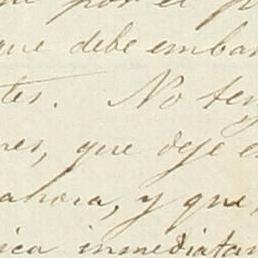 por el p
que debe embar
tes. No ten
nes, que deje e
ahora, y que,
ica inmediatam